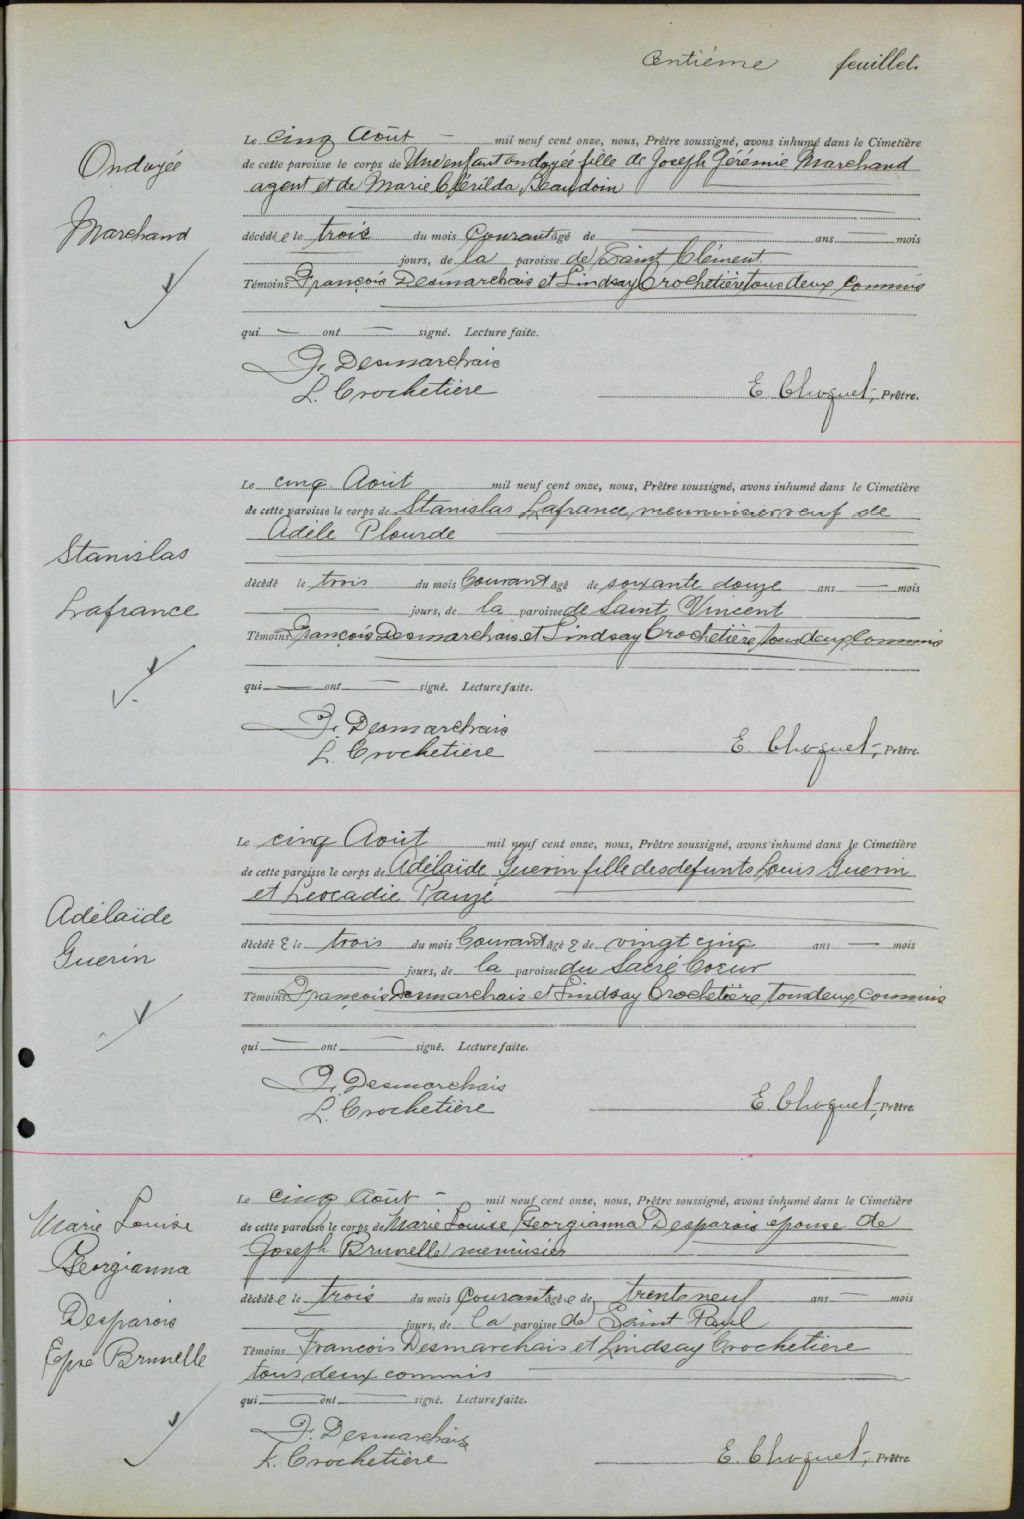 Centiéme feuillet.
Ondoyée
Marchand
Le cinq Août — mil neuf cent onze, nous, Prêtre soussigné, avons inhumé dans le Cimetière
de cette paroisse le corps de Une enfant ondoyée fille de Joseph Jérémie Marchand
agent et de Marie Clérilda Beaudoin
décédé e le trois du mois Courant âgé de — ans — mois
— jours, de la paroisse de Saint Clément
Témoins François Desmarchais et Lindsay Crochetière tous deux commis
qui — ont — signé. Lecture faite.
F. Desmarchais
L. Crochetière
E. Choquet, Prêtre.
Stanislas
Lafrance
Le cinq Août mil neuf cent onze, nous, Prêtre soussigné, avons inhumé dans le Cimetière
de cette paroisse le corps de Stanislas Lafrance, menuisier veuf de
Adèle Plourde
décédé le trois du mois Courant âgé de soixante douze ans — mois
— jours, de la paroisse de Saint Vincent
Témoins François Desmarchais et Lindsay Crochetière tous deux commis
qui — ont — signé. Lecture faite.
F. Desmarchais
L. Crochetière
E. Choquet, Prêtre.
Adélaïde
Guerin
Le cinq Août mil neuf cent onze, nous, Prêtre soussigné, avons inhumé dans le Cimetière
de cette paroisse le corps de Adélaïde Guerin fille des defunts Louis Guerin
et Leocadie Pauzé
décédé e le trois du mois Courant âgé e de vingt cinq ans — mois
— jours, de la paroisse du Sacré Coeur
Témoins François Desmarchais et Lindsay Crochetière tous deux commis
qui — ont — signé. Lecture faite.
F. Desmarchais
L. Crochetière
E. Choquet, Prêtre.
Marie Louise
Georgianna
Desparois
Epse Brunelle
Le cinq Août — mil neuf cent onze, nous, Prêtre soussigné, avons inhumé dans le Cimetière
de cette paroisse le corps de Marie Louise Georgianna Desparois épouse de
Joseph Brunelle menuisier
décédé e le trois du mois Courant âgé e de trente neuf ans — mois
— jours, de la paroisse de Saint Paul
Témoins François Desmarchais et Lindsay Crochetière
tous deux commis
qui — ont — signé. Lecture faite.
F. Desmarchais
L. Crochetière
E. Choquet, Prêtre.